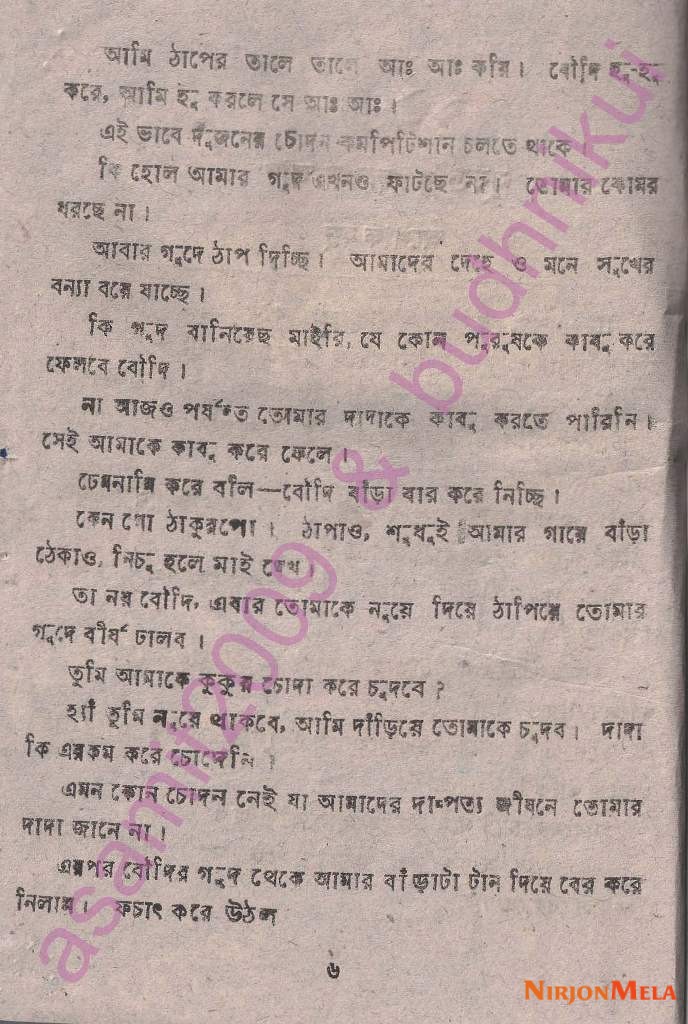 আমি ঠাপের তালে তালে আঃ আঃ করি। বৌদি হু-হু
করে, আমি হু করলে সে আঃ আঃ।
এই ভাবে দুজনের চোদন কমপিটিশান চলতে থাকে
কি হোল আমার গুদ এখনও ফাটছে না। তোমার কোমর
ধরছে না।
আবার গুদে ঠাপ দিচ্ছি। আমাদের দেহে ও মনে সুখের
বন্যা বয়ে যাচ্ছে।
কি গুদ বানিয়েছ মাইরি, যে কোন পুরুষকে কাবু করে
ফেলবে বৌদি।
না আজও পর্যন্ত তোমার দাদাকে কাবু করতে পারিনি।
সেই আমাকে কাবু করে ফেলে।
ঢেমনামি করে বলি—বৌদি বাঁড়া বার করে নিচ্ছি।
কেন গো ঠাকুরপো। ঠাপাও, শুধুই আমার গায়ে বাঁড়া
ঠেকাও, নিচু হলে মাই দেখ।
তা নয় বৌদি, এবার তোমাকে নুয়ে দিয়ে ঠাপিয়ে তোমার
গুদে বীর্য ঢালব।
তুমি আমাকে কুকুর চোদা করে চুদবে?
হ্যাঁ তুমি নুয়ে থাকবে, আমি দাঁড়িয়ে তোমাকে চুদব। দাদা
কি এরকম করে চোদেনি?
এমন কোন চোদন নেই যা আমাদের দাম্পত্য জীবনে তোমার
দাদা জানে না।
এরপর বৌদির গুদ থেকে আমার বাঁড়াটা টান দিয়ে বের করে
নিলাম। ফচাৎ করে উঠল
৬
asamit2009 & budhnikui
NIRJONMELA